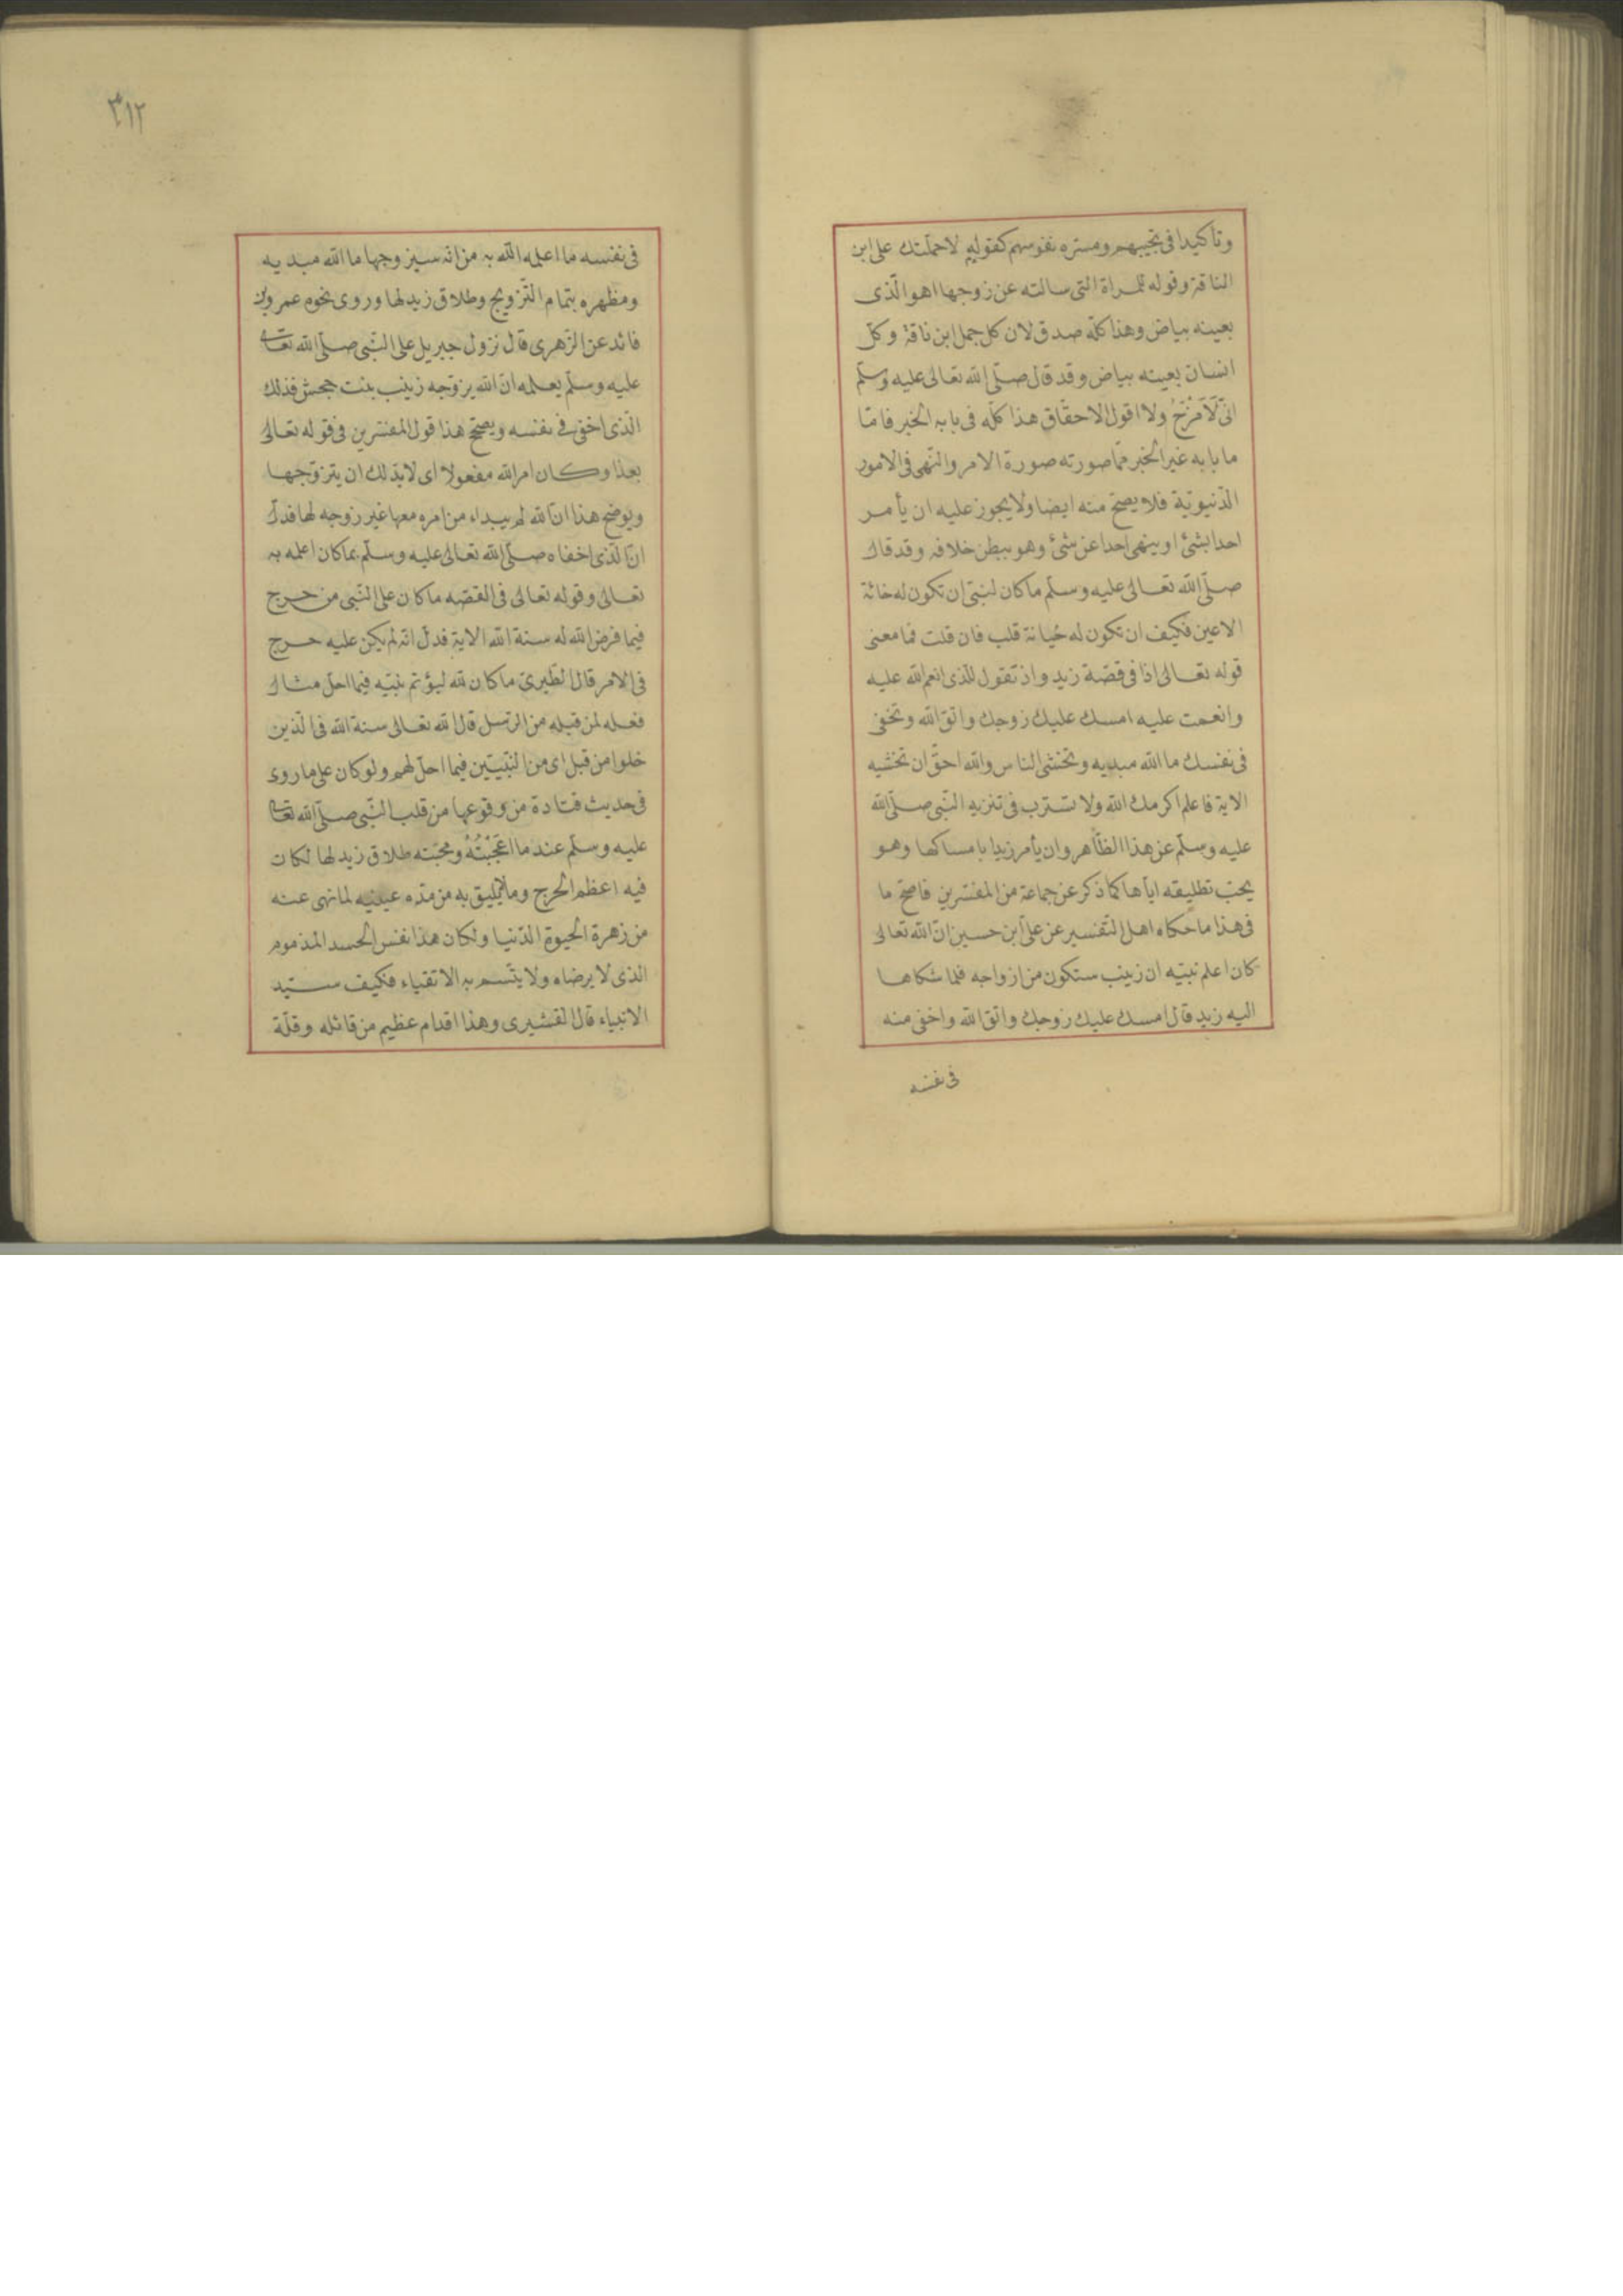 وتأكيدا فى تحببهم ومسره نفوسهم كقوليه لاحملنك على ابن
الناقة وقوله للمراة التى سالته عن زوجها اهو الذى
بعينه بياض وهذا كله صدق لان كل جمل ابن ناقة وكل
انسان بعينه بياض وقد قال صلى الله تعالى عليه وسلم
انى لَاَمْزَحُ ولا اقول الا حقا ق هذا كله فى بابه الخبر فامّا
ما بابه غير الخبر مما صورته صورة الامر والنهى فى الامور
الدنيوية فلا يصح منه ايضا ولا يجوز عليه ان يأمر
احدا بشئ او ينهى احدا عن شئ وهو يبطن خلافه وقد قال
صلى الله تعالى عليه وسلم ما كان لنبى ان تكون له خائنة
الاعين فكيف ان تكون له خيانة قلب فان قلت فما معنى
قوله تعالى اذا فى قصة زيد واذ تقول للذى انعم الله عليه
وانعمت عليه امسك عليك زوجك واتق الله وتخفى
فى نفسك ما الله مبديه وتخشى الناس والله احق ان تخشيه
الاية فاعلم اكرمك الله ولا تسترب فى تنزيه النبى صلى الله
عليه وسلم عن هذا الظاهر وان يأمر زيدا بامساكها وهو
يحب تطليقه اياها كما ذكر عن جماعة من المفسرين فاصح ما
فى هذا ما حكاه اهل التفسير عن على ابن حسين ان الله تعالى
كان اعلم نبيه ان زينب ستكون من ازواجه فلما شكاها
اليه زيد قال امسك عليك زوجك واتق الله واخفى منه
فى نفسه
٣١٢
فى نفسه ما اعلمه الله به من انه سيزوجها ما الله مبديه
ومظهره بتمام التزويج وطلاق زيد لها وروى نحوه عمرو بن
فائد عن الزهرى قال نزول جبريل على النبى صلى الله تعالى
عليه وسلم يعلمه ان الله يزوجه زينب بنت جحش فذلك
الذى اخفى فى نفسه ويصحح هذا قول المفسرين فى قوله تعالى
بعذا وكان امر الله مفعولا اى لابد لك ان يتزوجها
ويوضح هذا ان الله لم يبداء من امره معها غير زوجه لها فدل
ان الذى اخفاه صلى الله تعالى عليه وسلم بما كان اعلمه به
تعالى وقوله تعالى فى القصه ما كان على النبى من حرج
فيما فرض الله له سنة الله الاية فدل انه لم يكن عليه حرج
فى الامر قال الطبرى ما كان لله ليؤثم نبيه فيما احل مثال
فعله لمن قبله من الرسل قال الله تعالى سنة الله فى الذين
خلوا من قبل اى من النبيين فيما احل لهم ولو كان على ما روى
فى حديث قتادة من وقوعها من قلب النبى صلى الله تعالى
عليه وسلم عند ما اَعْجَبْتُهُ ومحبته طلاق زيد لها لكان
فيه اعظم الحرج وما لا يليق به من مده عينيه لما نهى عنه
من زهرة الحيوة الدنيا ولكان هذا نفس الحسد المذموم
الذى لا يرضاه ولا يتسم به الاتقياء فكيف سيد
الانبياء قال القشيرى وهذا اقدام عظيم من قائله وقلة